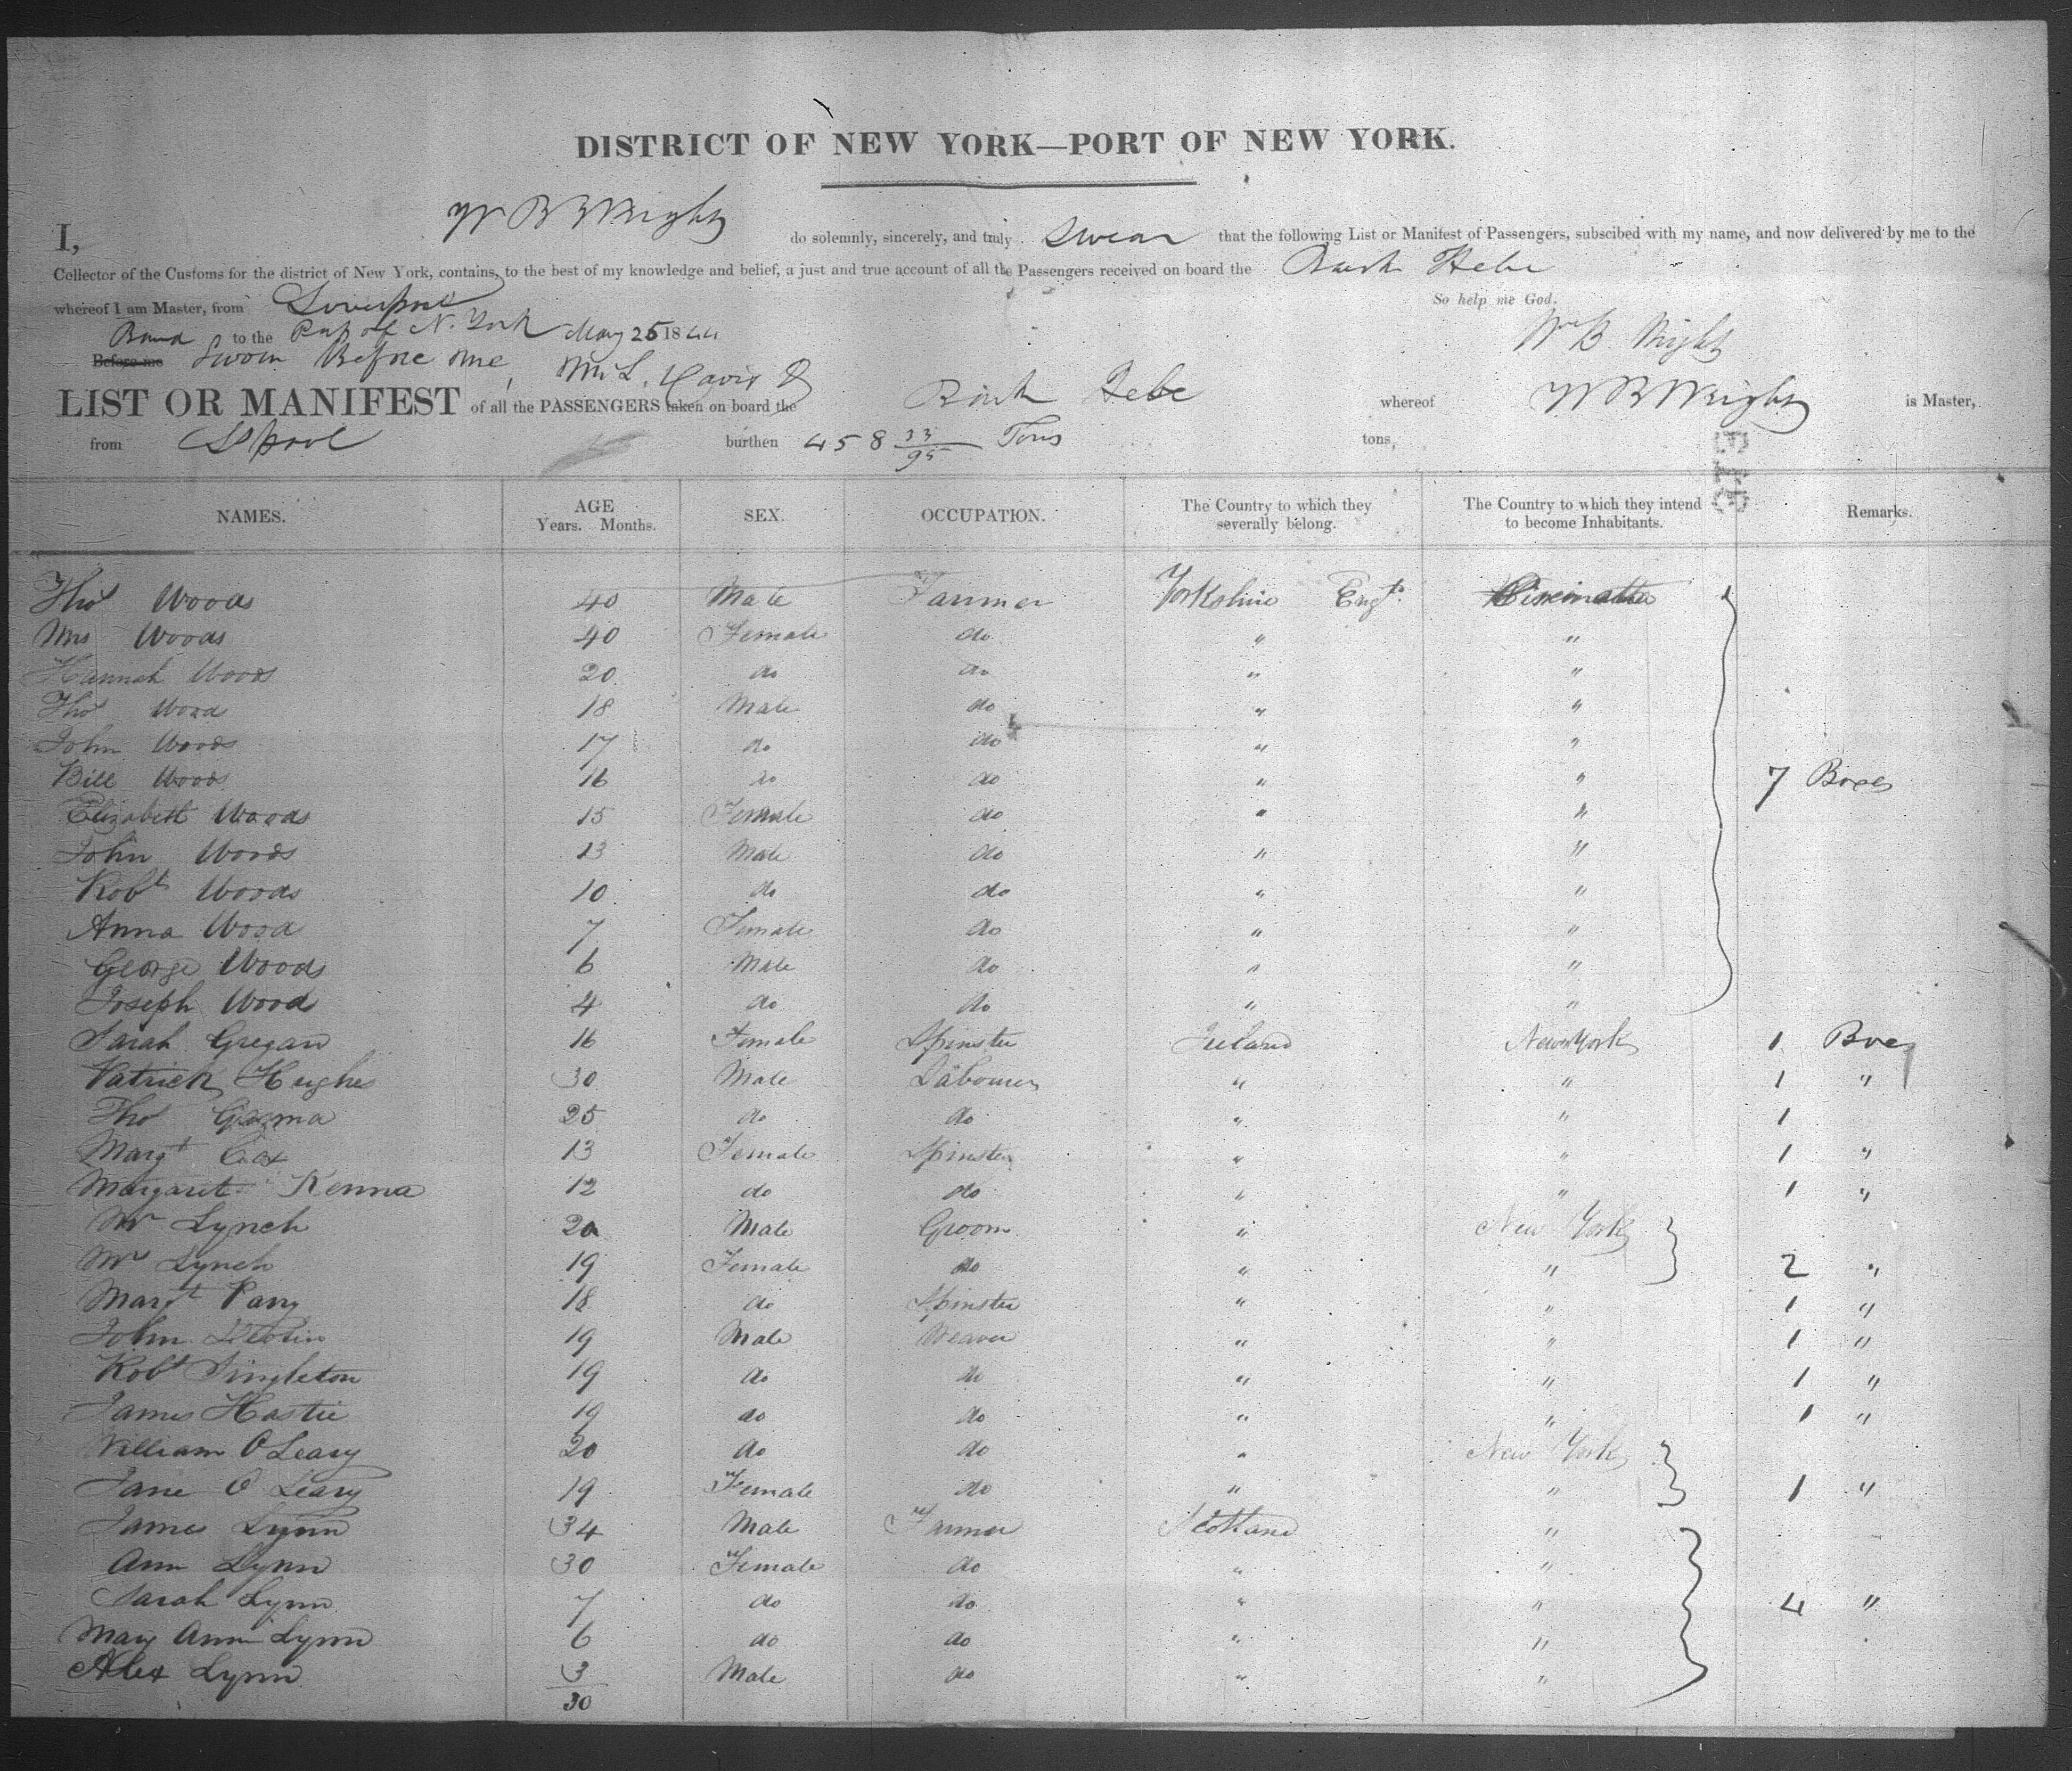 DISTRICT OF NEW YORK—PORT OF NEW YORK.
I, W B Wright do solemnly, sincerely, and truly swear that the following List or Manifest of Passengers, subscibed with my name, and now delivered by me to the
Collector of the Customs for the district of New York, contains, to the best of my knowledge and belief, a just and true account of all the Passengers received on board the Bark Hebe
whereof I am Master, from Liverpool So help me God.
Bound to the Port of N. York May 25 1844 Wm B. Wright
Before me Sworn Before me, M. L. Davis
LIST OR MANIFEST of all the PASSENGERS taken on board the Bark Hebe whereof W B Wright is Master,
from L'pool burthen 458 33/95 Tons tons,
NAMES. AGE Years. Months. SEX. OCCUPATION. The Country to which they severally belong. The Country to which they intend to become Inhabitants. Remarks.
Thos Woods 40 Male Farmer Yorkshire Engd. Cincinnatti
Mrs Woods 40 Female do " "
Hannah Woods 20 do do " "
Thos Wood 18 Male do " "
John Woods 17 do do " "
Bill Woods 16 do do " " 7 Boxes
Elizabeth Woods 15 Female do " "
John Woods 13 Male do " "
Robt Woods 10 do do " "
Anna Wood 7 Female do " "
George Woods 6 Male do " "
Joseph Wood 4 do do " "
Sarah Gregan 16 Female Spinster Ireland New York 1 Box
Patrick Hughes 30 Male Labourer " " 1 "
Thos 25 do do " " 1
Margt Cox 13 Female Spinster " " 1 "
Margaret Kenna 12 do do " " 1 "
Mr Lynch 20 Male Groom " New York
Mrs Lynch 19 Female do " " 2 "
Margt Parry 18 do Spinster " " 1 "
John 19 Male Weaver " " 1 "
Robt Singleton 19 do do " " 1 "
James Hastie 19 do do " " 1 "
William O Leary 20 do do " New York
Jane O Leary 19 Female do " " 1 "
James Lynn 34 Male Farmer Scotland "
Ann Lynn 30 Female do " "
Sarah Lynn 7 do do " " 4 "
Mary Ann Lynn 6 do do " "
Alex Lynn 3 Male do " "
30